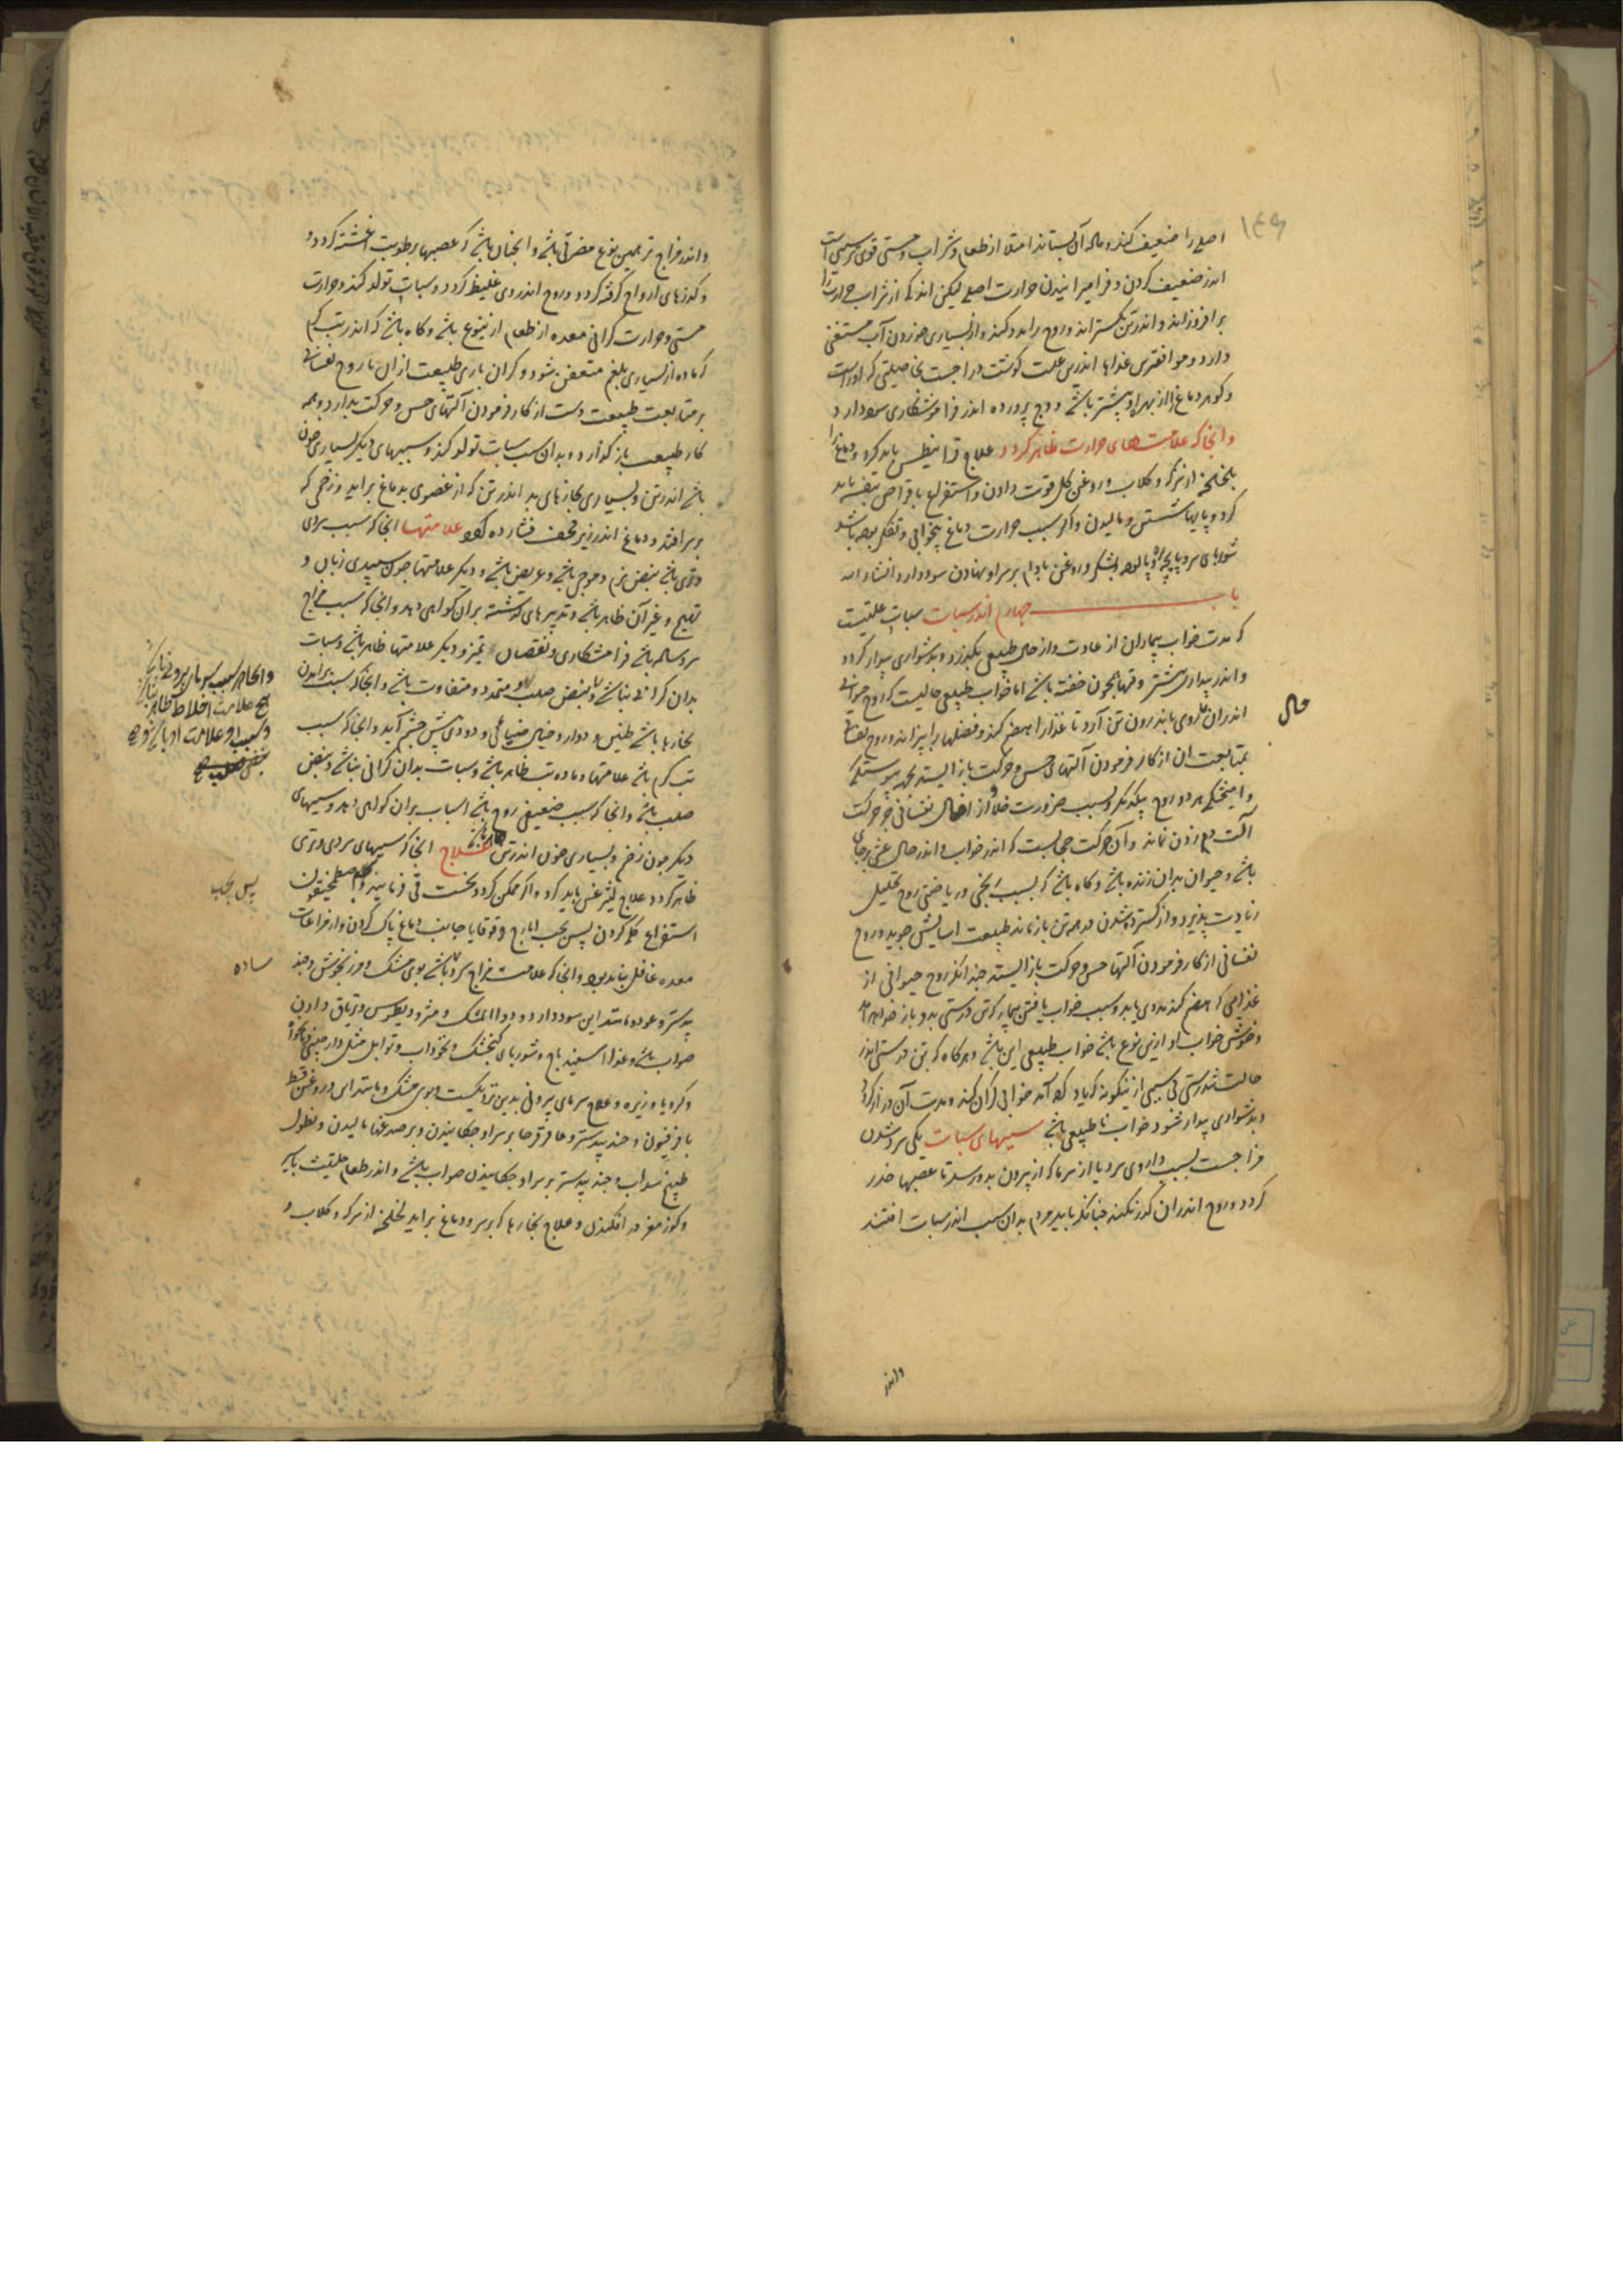 ۱۴۹
اصلی را ضعیف کند و ماده آن بستاند امتلا از طعام و شراب و مستی قوی تر سببی است
اندر ضعیف کردن و فرا میرانیدن حرارت اصلی لیکن اندکی از شراب حرارت را
برافروزاند و اندر تن بگستراند و روح را مدد کند و از بسیاری خوردن آب مستغنی
دارد و موافقترین غذاها اندرین علت گوشت دراج است بخاصیتی که او راست
و گوهر دماغ را از بهر او بیشتر باشد و وج پرورده اندر فراموشکاری سود دارد
و انجا که علامتهای حرارت ظاهر گردد علاج قرانیطس باید کرد و دماغ را
بلخلخه از سرکه و گلاب و روغن گل قوت دادن و استفراغ باقراص بنفشه باید
کرد و پایها شستن و مالیدن و اگر بسبب حرارت دماغ بیخوابی و تفکر بوده باشد
شوربای سر و پایچه و پالوده بشکر و روغن بادام بر سر او نهادن سود دارد انشاء الله
باب چهارم اندر سبات سبات علتیست
که مدت خواب بیماران از عادت و از حال طبیعی بگذرد و بدشواری بیدار گردد
و اندر بیداری بیشتر وقتها همچون خفته باشد اما خواب طبیعی حالیست که روح حیوانی
حال
اندران روی باندرون تن آرد تا غذا را هضم کند و فضلها را بپزاند و روح نفسانی
بمتابعت آن از کار فرمودن آلتهای حس و حرکت باز ایستد بجهد پیوستگی
و آمیختگی هر دو روح بیکدیگر و بسبب ضرورت خلا و از افعال نفسانی جز حرکت
آلت دم زدن نماند و آن حرکت حجابست که اندر خواب و اندر حال غشی برجای
باشد و حیوان بدان زنده باشد و گاه باشد که بسبب رنجی و ریاضتی روح تحلیل
زیادت پذیرد و از گسترده شدن در همه تن باز ماند طبیعت اسایش جوید و روح
نفسانی از کار فرمودن آلتها حس و حرکت باز ایستد چندانکه روح حیوانی از
غذایی که هضم کند مددی یابد و سبب خواب یافتن بیمار که تن درستی بدو باز خواهد آمد
و خوشی خواب او ازین نوع باشد خواب طبیعی این باشد و هرگاه که تن درستی اندر
حالت تندرستی بی سببی ازینگونه که یاد کرده آمد خوابی گران کند و مدت آن دراز گردد
و بدشواری بیدار شود خواب نا طبیعی باشد سببهای سبات یکی سرد شدن
مزاجست بسبب داروی سرد یا از سرما که از بیرون بدو رسد تا عصبها خدر
گردد و روح اندران گذر نکند چنانکه باید مردم بدان سبب اندر سبات افتند
واندر
واندر مزاج تر همین نوع مضرتی باشد و انچنان باشد که عصبها برطوبت اغشته گردد
و گذرهای ارواح گرفته گردد و روح اندر وی غلیظ گردد و سبات تولد کند و حرارت
مستی و حرارت گرانی معده از طعام ازین نوع باشد و گاه باشد که اندر تب گرم
که ماده از بسیاری بلغم متعفن شود و گران باری طبیعت ازان تا روح نفسانی
بر متابعت طبیعت دست از کار فرمودن آلتهای حس و حرکت بدارد و همه
کار طبیعت باز گذارد و بدان سبب سبات تولد کند و سببهای دیگر بسیاری خون
باشد اندر تن و بسیاری بخارهای بد اندر تن که از عضوی بدماغ براید و زخمی که
بر سر افتد و دماغ اندر زیر قحف فشارده گردد علامتها انجا که سبب سردی
و تری باشد نبض نرم و موجی باشد و عریض باشد و دیگر علامتها چون سپیدی زبان و
تهیج و غیر آن ظاهر باشد و تدبیرهای گذشته بران گواهی دهد و انجا که سبب مزاج
سرد ساده باشد فرامشکاری و نقصان تمیز و دیگر علامتها ظاهر باشد و سبات
بدان گرانی نباشد و نبض صلب و متمدد و متفاوت باشد و انجا که سبب برامدن
بخارها باشد طنین و دوار و خیال ضیایی و دودی پیش چشم آید و انجا که سبب
تب گرم باشد علامتها و ماده تب ظاهر باشد و سبات بدان گرانی نباشد و نبض
صلب باشد و انجا که سبب ضعیفی روح باشد اسباب بران گواهی دهد و سببهای
دیگر چون زخم و بسیاری خون اندر تن علاج انجا که سببهای سردی و تری
ظاهر گردد علاج لیثرغس باید کرد و اگر ممکن گردد نخست قی فرمایند
استفراغ کردن پس بحب ایارج و قوقایا جانب دماغ پاک کردن و از مراعات
معده غافل نباید بود و انجا که علامت مزاج سرد باشد بوی مشک و مرزنجوش و جند
بیدستر و عود و مانند این سود دارد و دواء المشک و مثرودیطوس و تریاق دادن
صواب باشد و غذا اسفیدباج و شوربای گنجشک و نخوداب و توابل مثل دارچینی
و کرویا و زیره و علاج سرمای بیرونی بدین نزدیکست و بوی مشک و مانند این و روغن قسط
با فرفیون و جند بیدستر و عاقرقرحا بر سر او چکانیدن و بر صدغها مالیدن و نطول
طبیخ سداب و جند بیدستر بر سر او چکانیدن صواب باشد و اندر طعام حلتیت باید
و گوز مغز در افگندن و علاج بخارها که بر سر و دماغ براید لخلخه از سرکه و گلاب و
هیچ علامت اخلاط ظاهر نباشد
پس بحب
ساده